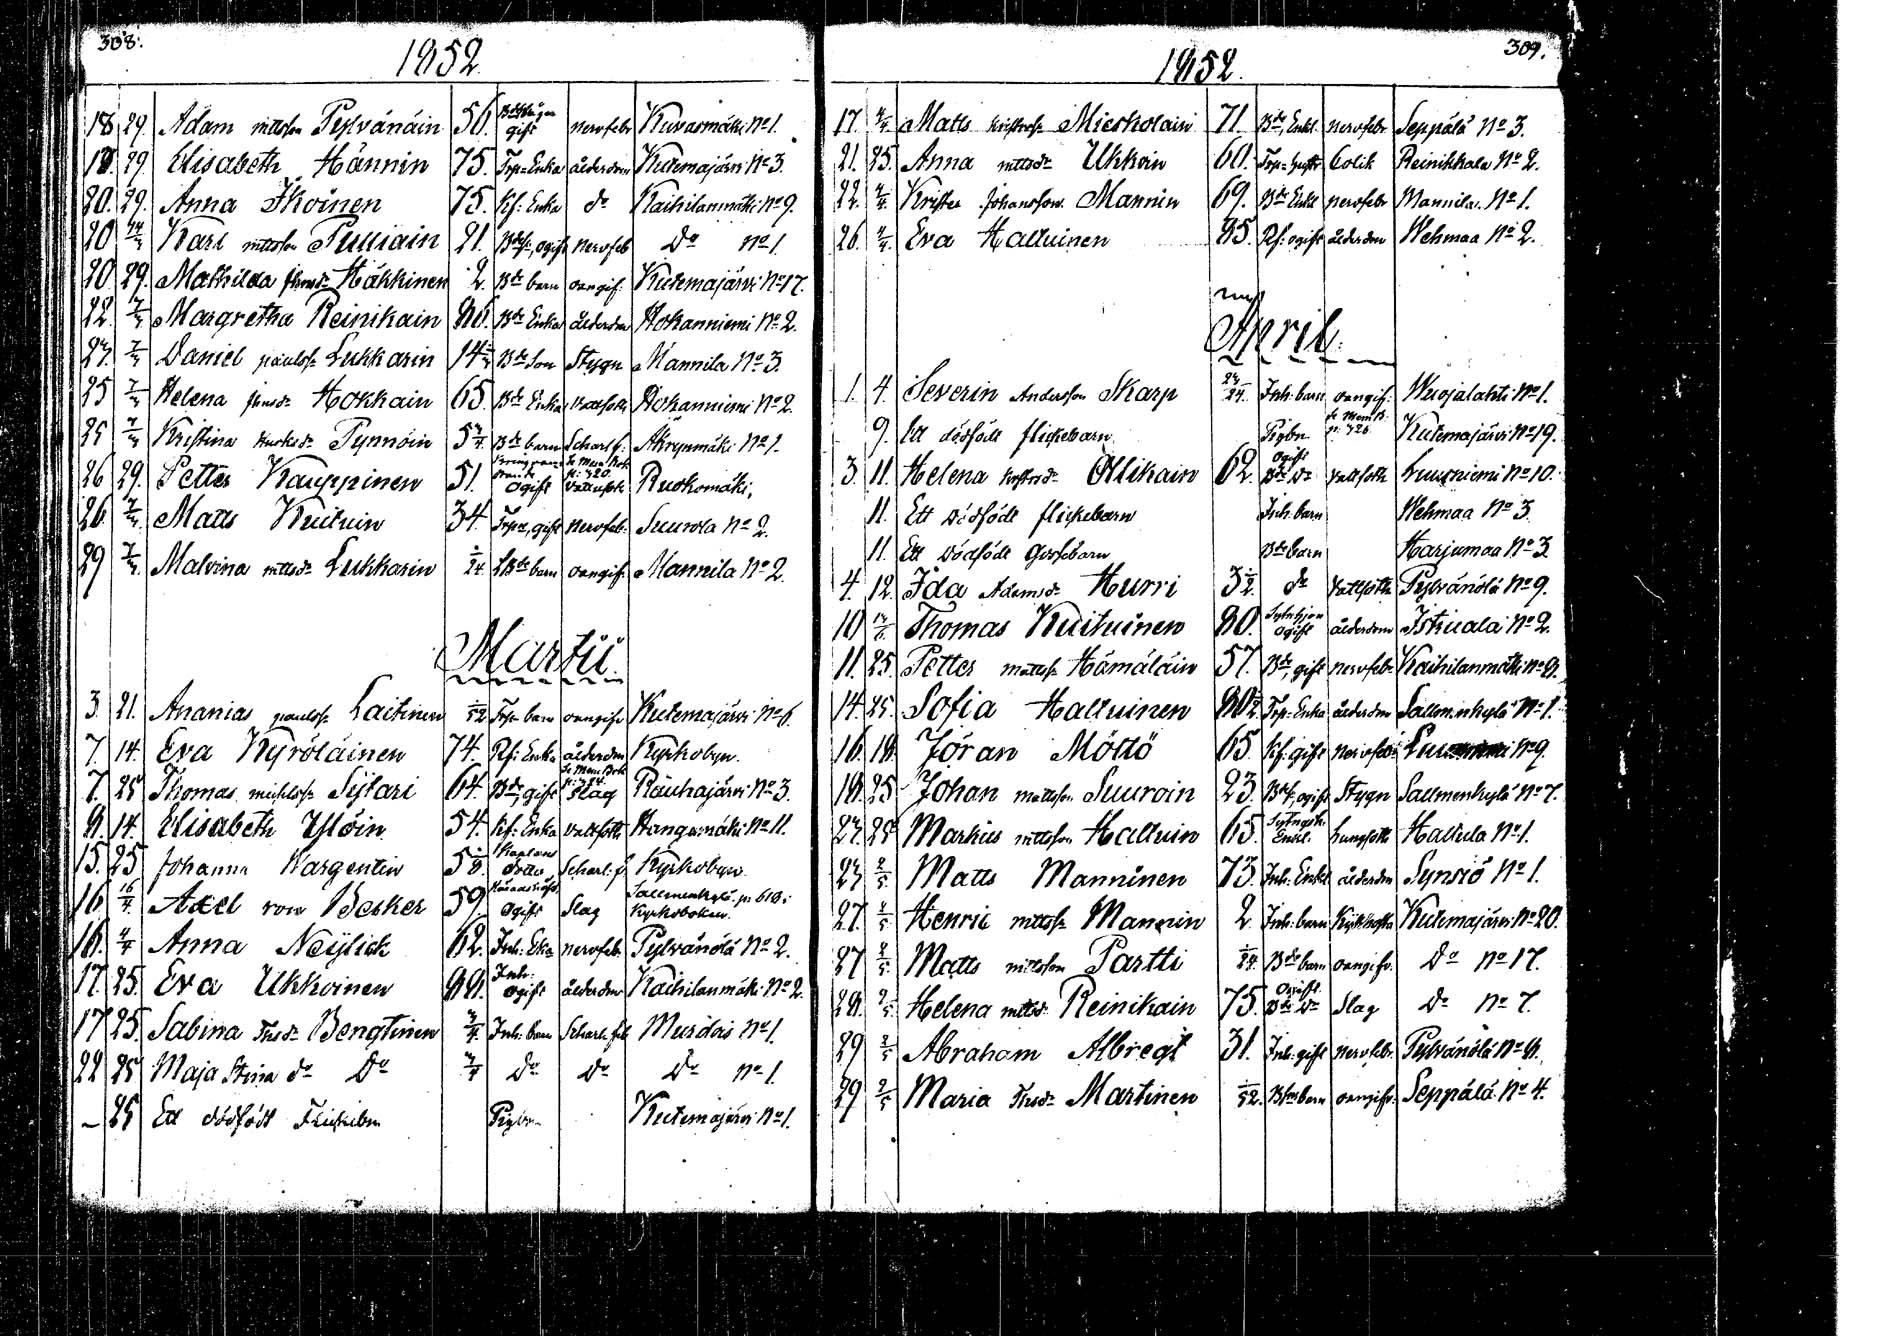 308.
1852.
18. 29. Adam mttsson Pylvänäin 56. gift nervfebr Kuvasmäki No 1.
18. 29. Elisabeth Hännin 75. Trp: Enka ålderdom Kutemajärvi No 3.
20. 29. Anna Ikoinen 75. Kf: Enka do Kaihilanmäki No 9.
20 14/3 Karl mttsson Pulliain 21. ogift nervfeb Do No 1.
20 29. Mathilda Häkkinen 2. Bde barn oangif: Kutemajärvi No 17.
22. 7/3 Margretha Reinikain 86. Bde Enka ålderdm Hokanniemi No 2.
23. 7/3 Daniel paulss: Lukkarin 14 Bde Son Stygn Mannila No 3.
25 7/3 Helena Hokkain 65. Bde Enka Vattsoth Hokanniemi No 2.
25 Kristina Tynnöin 5 Bde barn Scharl f: No 1.
26 29. Petter Kauppinen 51. ogift Vattusot Ruokomäki,
26. 7/3 Matts Kuituin 34. Trp:, gift nervfeb: Suurola No 2.
29 7/3 Malvina mttsdr Lukkarin 2/24 Bde barn oangif. Mannila No 2.
Martii.
3. 21. Ananias paulss: Laitinen 1/52 Trp: barn oangifv Kutemajärvi No 6.
7. 14. Eva Kyröläinen 74. Rf: Enka ålderdm Kyrkobyn.
7. 25 Thomas michlss: Sijtari 64. Bde, gift Slag Rauhajärvi No 3.
8. 14. Elisabeth Ylöin 54. Kf: Enka Vattsoth Hangasmäki No 11.
15. 25 Johanna Wargentin 58. Kaplans dotter Scharl. f Kyrkobyn
16 16/4. Axel von Becker 59 ogift Slag Kyrkoboken.
16. 4/4 Anna Neylick 62. Inh: Eka nervfebr. Pylvänälä No 2.
17. 25. Eva Ukkoinen 88. Inh: ogift ålderdm Kaihilanmäki No 2.
17 25. Sabina Bengtinen 3/4. Inh: barn Scharl. feb No 1.
22 25 Maja Stina do Do 3/4 Do Do Do No 1.
– 25 Ett dödfödt Flickebn Kutemajärvi No 1.
309.
1852.
17. 4/4 Matts Mieskolain 71. Bde, Enkl. nervfebr Seppälä No 3.
21. 25. Anna mttsdr Ukkoin 60. Colik Reinikkala No 2.
22. 4/4. Krister Johansson Mannin 69. Bde Enkl nervfebr Mannila No 1.
26. 4/4. Eva Halluinen 85. Rf: ogift ålderdm Wehmaa No 2.
April.
1. 4. Severin Andersson Skarp 23/24. Inh. barn oangif: Wuojalahti No 1.
9. Ett dödfödt flickebarn. Kutemajärvi No 19.
3. 11. Helena Ollikain 62. Ogift Bde Do Vattsoth Luusniemi No 10.
11. Ett dödfödt flickebarn Inh. barn Wehmaa No 3.
11. Ett dödfödt Gossebarn Bde barn Harjumaa No 3.
4. 12. Ida Adamsdr Hurri 3 1/2. do Vattsoth Pylvänälä No 9.
10 Thomas Kuituinen 80. ogift ålderdom Istuala No 2.
11. 25. Petter mattss: Hämäläin 57. Bde, gift nervfebr Kaihilanmäki No 8.
14. 25. Sofia Halluinen 80 Trp: Enka ålderdm Sallmenkylä No 1.
16. 18. Jöran Möttö 65. Kf: gift nervfeb: No 9.
18. 25 Johan mattsson Suuroin 23. ogift Stygn Sallmenkylä No 7.
23. 25 Markus mttsson Halluin 65. Enkl. Lungsoth Hallula No 1.
23 2/5 Matts Manninen 73. Inh: Enkl ålderdm Synsiö No 1.
27. 2/5 Henric mttss: Mannin 2. Inh: barn Kikhosta Kutemajärvi No 20.
27 2/5. Matts mttsson Partti 1/24. Bde barn oangifv. Do No 17.
28. 2/5 Helena mttsdr Reinikain 75. Ogift Bde Do Slag Do No 7.
29 2/5 Abraham Albregt 31. Inh: gift nervfebr. Pylvänälä No 8.
29 2/5 Maria Martinen 1/52. barn oangifv. Seppälä No 4.